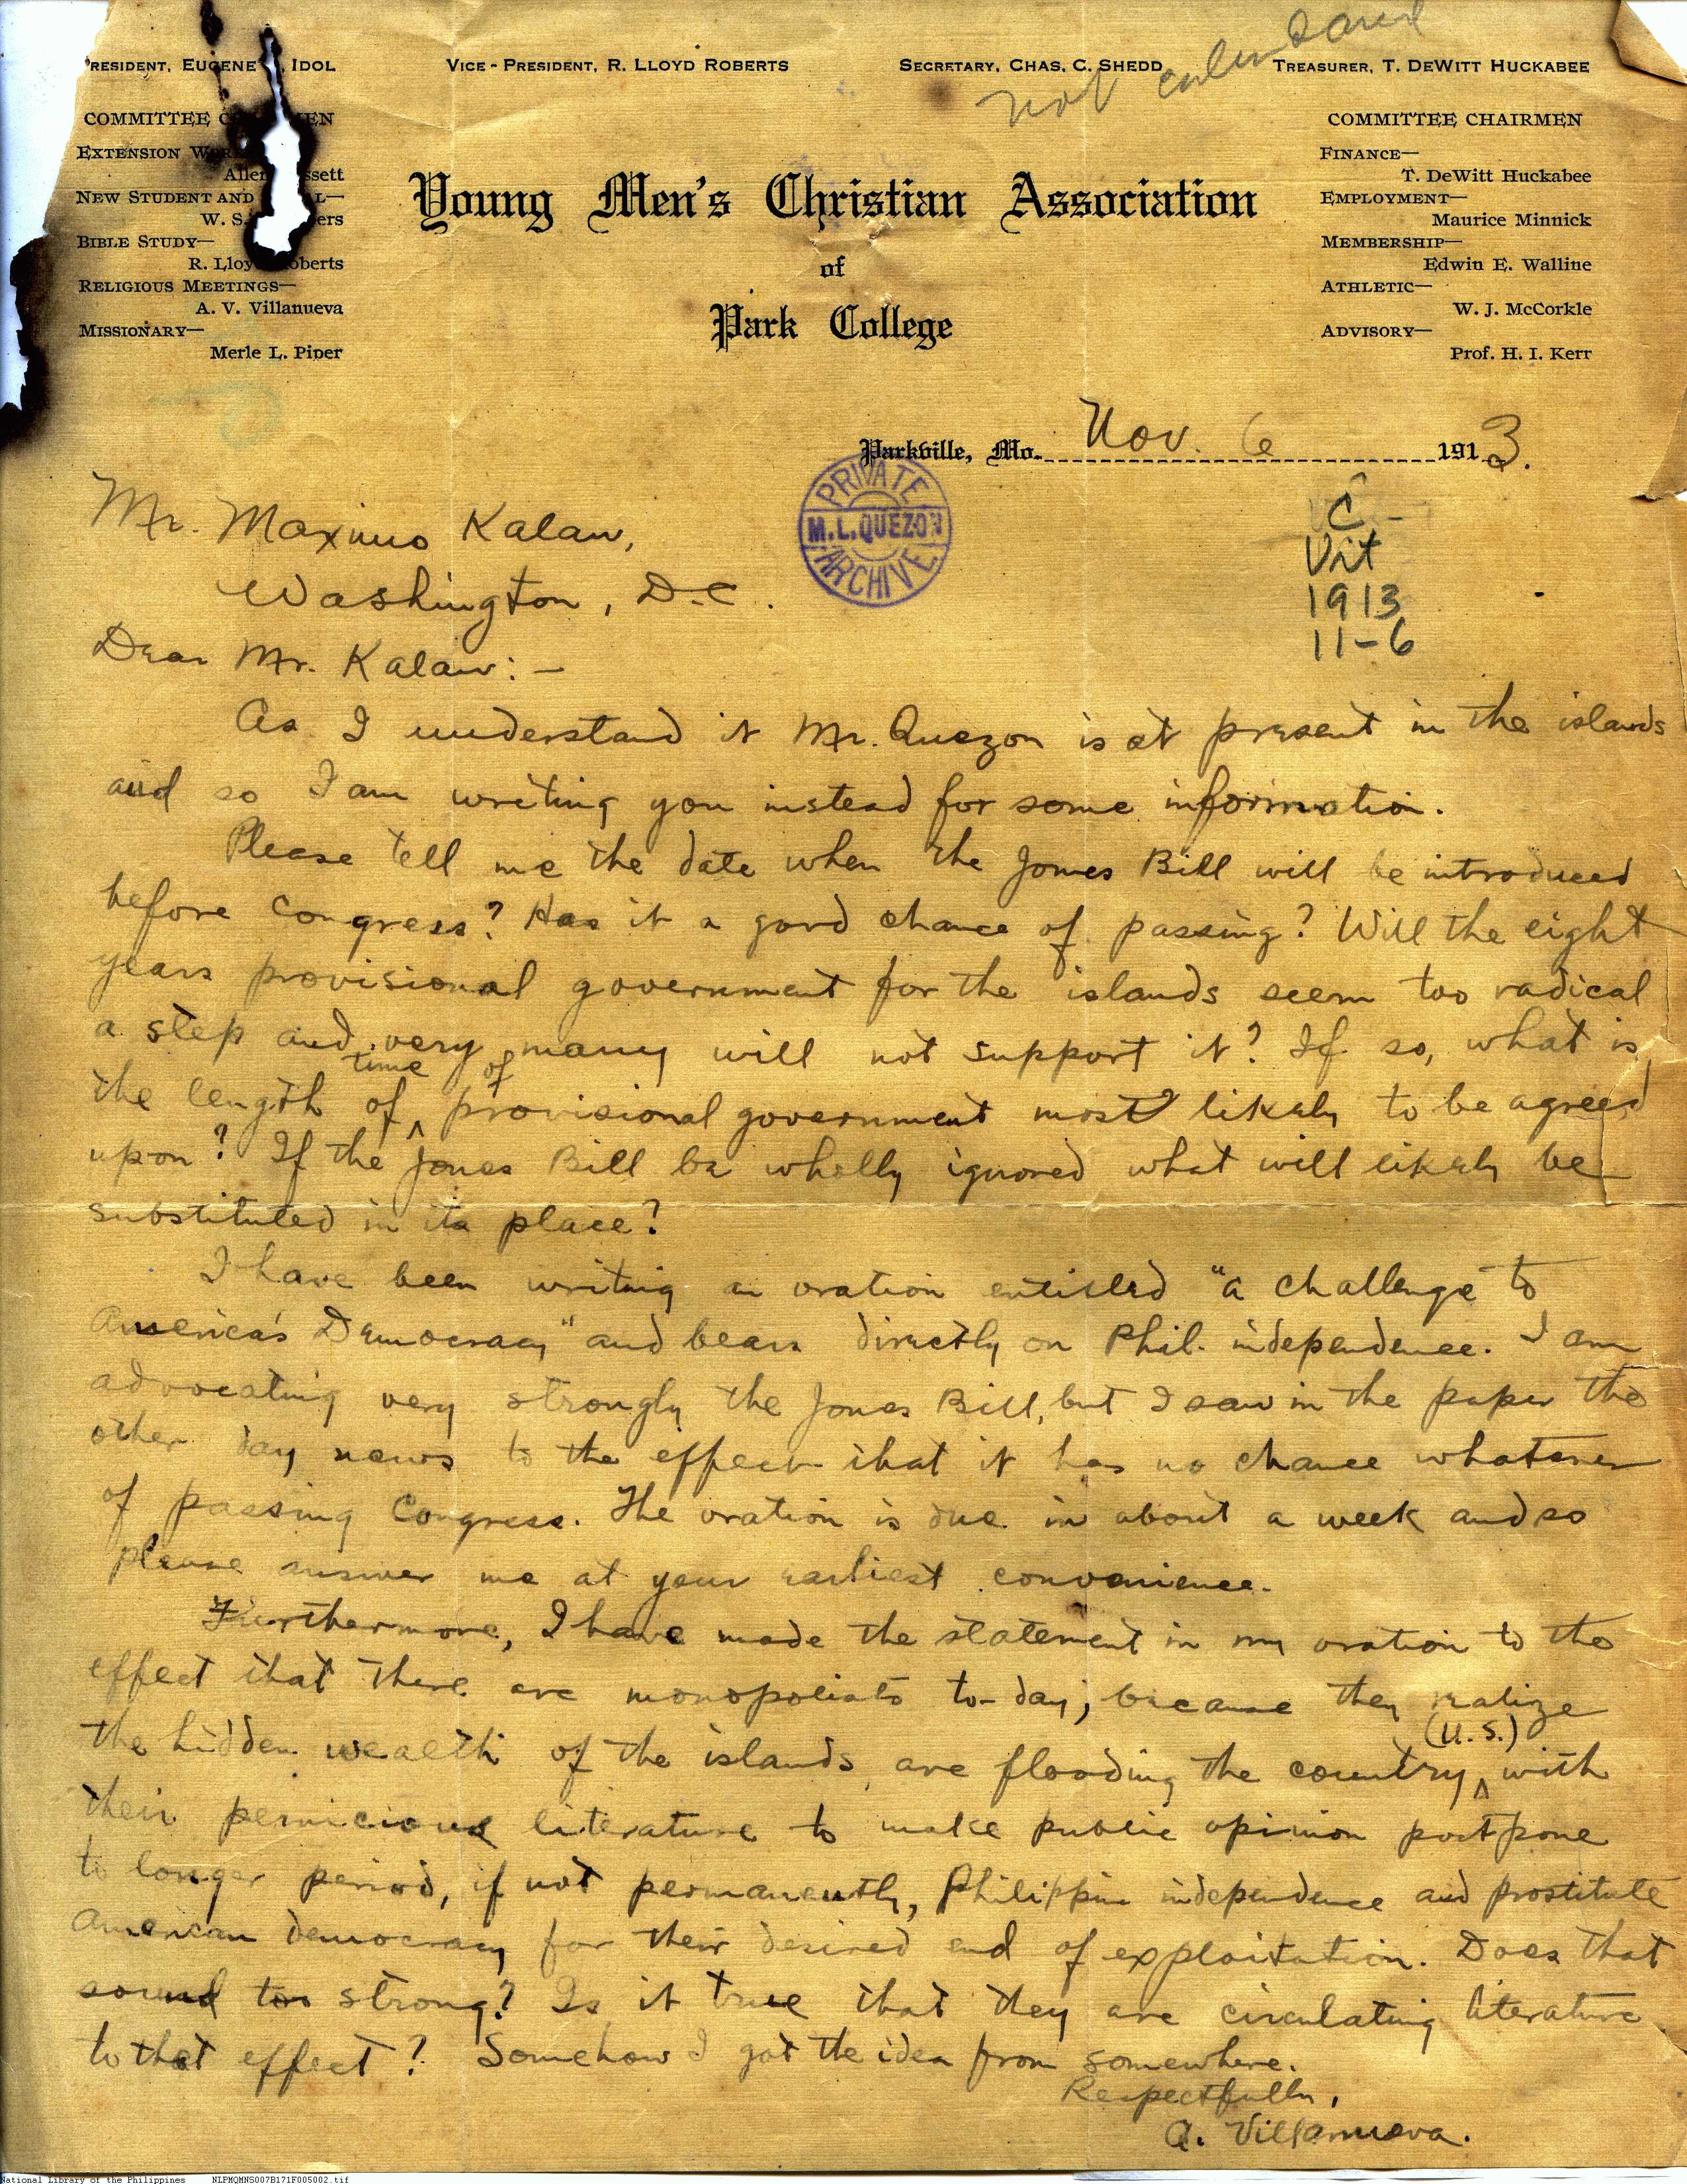 PRESIDENT, EUGENE IDOL
VICE-PRESIDENT, R. LLOYD ROBERTS
SECRETARY, CHAS. C. SHEDD
TREASURER, T. DEWITT HUCKABEE
not
COMMITTEE
EXTENSION
NEW STUDENT AND
W. S.
BIBLE STUDY—
R. Lloyd Roberts
RELIGIOUS MEETINGS—
A. V. Villanueva
MISSIONARY—
Merle L. Piper
COMMITTEE CHAIRMEN
FINANCE—
T. DeWitt Huckabee
EMPLOYMENT—
Maurice Minnick
MEMBERSHIP—
Edwin E. Walline
ATHLETIC—
W. J. McCorkle
ADVISORY—
Prof. H. I. Kerr
Young Men's Christian Association
of
Park College
Parkville, Mo. Nov. 6 1913.
PRIVATE
M.L.QUEZON
ARCHIVE
C -
Vit
1913
11-6
Mr. Maximo Kalaw,
Washington, D.C.
Dear Mr. Kalaw:—
As I understand it Mr. Quezon is at present in the islands
and so I am writing you instead for some information.
Please tell me the date when the Jones Bill will be introduced
before Congress? Has it a good chance of passing? Will the eight
years provisional government for the islands seem too radical
a step and very many will not support it? If so, what is
the length of time of provisional government most likely to be agreed
upon? If the Jones Bill be wholly ignored what will likely be
substituted in its place?
I have been writing an oration entitled "A Challenge to
America's Democracy" and bears directly on Phil. independence. I am
advocating very strongly the Jones Bill, but I saw in the paper the
other day news to the effect that it has no chance whatever
of passing Congress. The oration is due in about a week and so
please answer me at your earliest convenience.
Furthermore, I have made the statement in my oration to the
effect that there are monopolists to-day; because they realize
the hidden wealth of the islands, are flooding the country (U.S.) with
their pernicious literature to make public opinion postpone
to longer period, if not permanently, Philippine independence and prostitute
American democracy for their desired end of exploitation. Does that
sound too strong? Is it true that they are circulating literature
to that effect? Somehow I got the idea from somewhere.
Respectfully,
A. Villanueva.
National Library of the Philippines NLPMQMNS007B171F005002.tif